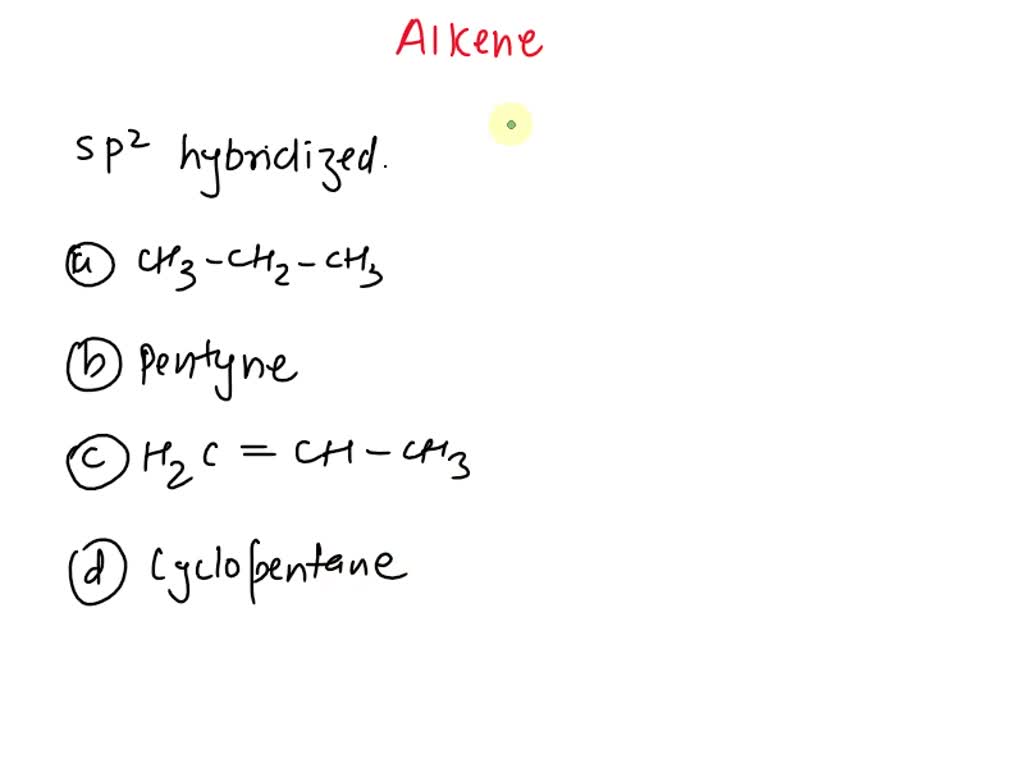 Alkene
sp² hybridized.
(a) CH₃-CH₂-CH₃
(b) Pentyne
(c) H₂C=CH-CH₃
(d) Cyclopentane